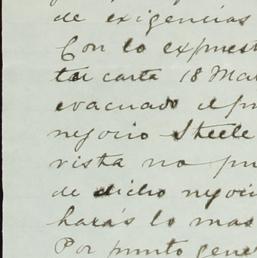 de exigencias
Con lo expuest
tu carta 18 Mar
evacuado el p
negocio Steele
vista no pu
de dicho negoci
harás lo mas
Por punto gene